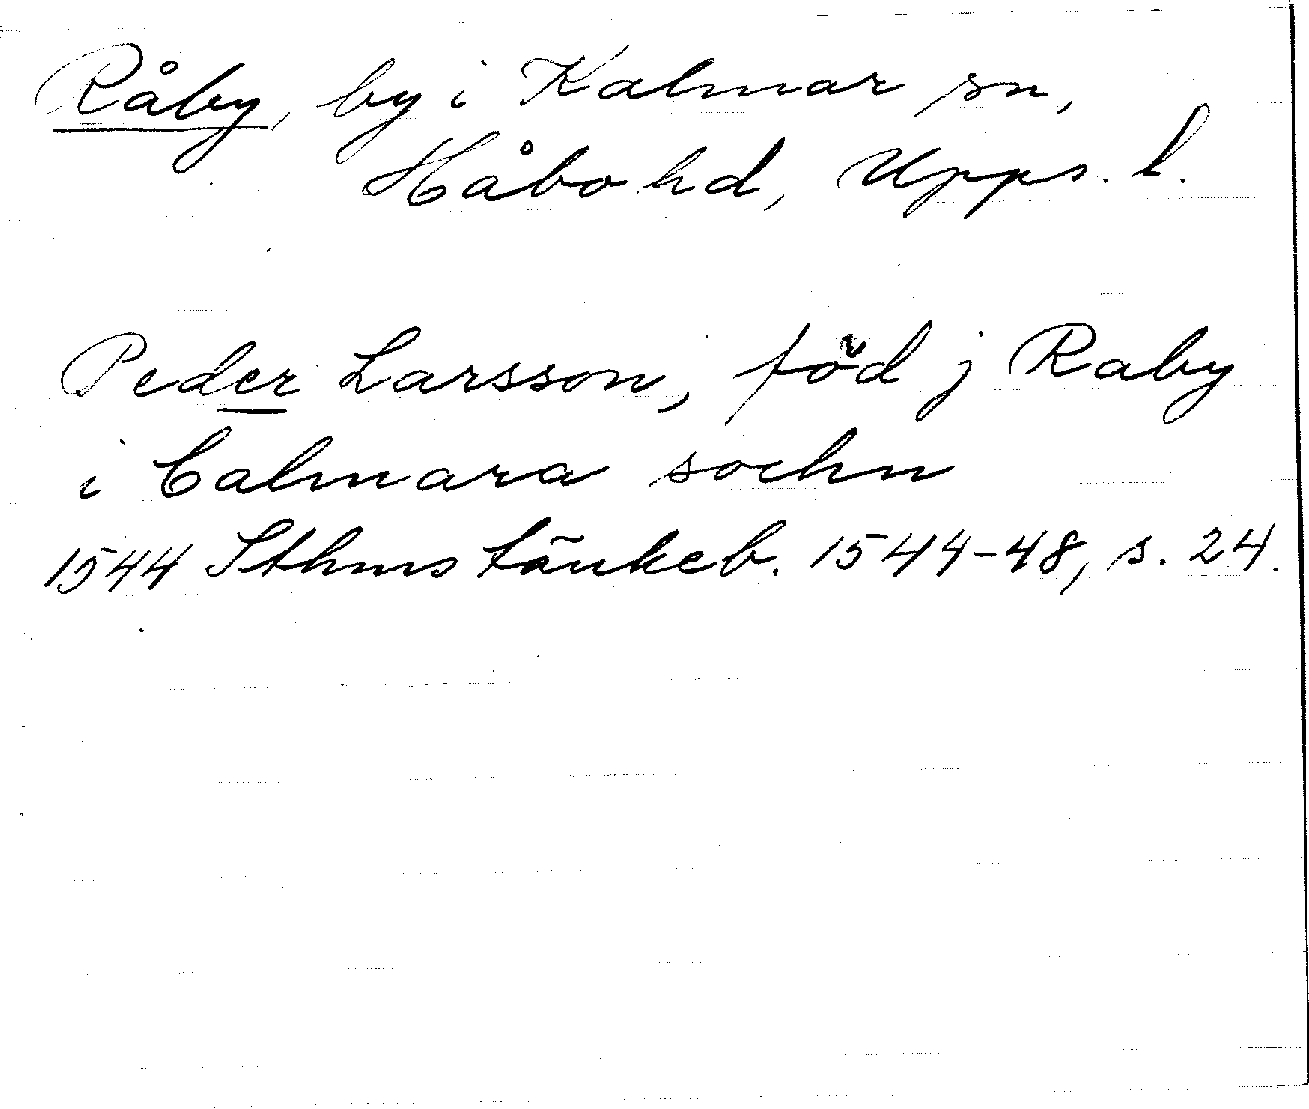 Råby, by i Kalmar sn,
Håbo hd, Upps. l.
Peder Larsson, föd j Raby
i Calmara sochn
1544 Sthms tänkeb. 1544-48, s. 24.